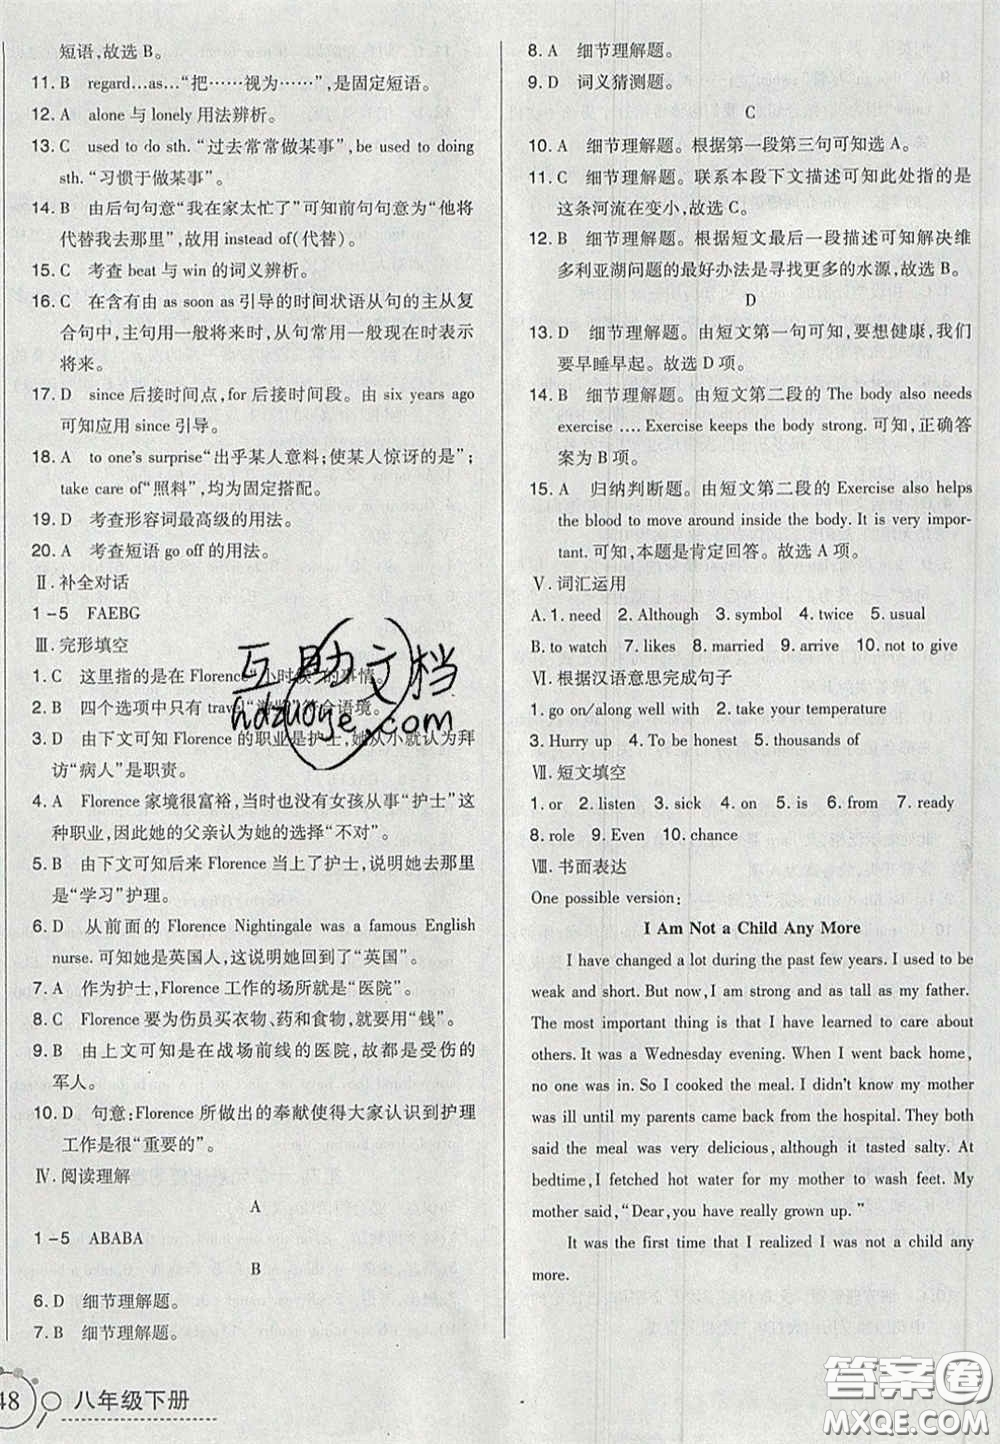 短语,故选 B。
11. B regard...as...“把……视为……”,是固定短语。
12. A alone 与 lonely 用法辨析。
13. C used to do sth. “过去常常做某事”, be used to doing
sth. “习惯于做某事”。
14. B 由后句句意“我在家太忙了”可知前句句意为“他将
代替我去那里”,故用 instead of(代替)。
15. C 考查 beat 与 win 的词义辨析。
16. C 在含有由 as soon as 引导的时间状语从句的主从复
合句中,主句用一般将来时,从句常用一般现在时表示
将来。
17. D since 后接时间点,for 后接时间段。由 six years ago
可知应用 since 引导。
18. A to one's surprise“出乎某人意料;使某人惊讶的是”;
take care of“照料”,均为固定搭配。
19. D 考查形容词最高级的用法。
20. A 考查短语 go off 的用法。
Ⅱ. 补全对话
1-5 FAEBG
Ⅲ. 完形填空
1. C 这里指的是在 Florence“小时候”的事情。
2. B 四个选项中只有 travel“游览”符合语境。
3. D 由下文可知 Florence 的职业是护士,她从小就认为拜
访“病人”是职责。
4. A Florence 家境很富裕,当时也没有女孩从事“护士”这
种职业,因此她的父亲认为她的选择“不对”。
5. B 由下文可知后来 Florence 当上了护士,说明她去那里
是“学习”护理。
6. D 从前面的 Florence Nightingale was a famous English
nurse. 可知她是英国人,这说明她又回到了“英国”。
7. A 作为护士,Florence 工作的场所就是“医院”。
8. C Florence 要为伤员买衣物、药和食物,就需要用“钱”。
9. B 由上文可知是在战场前线的医院,故都是受伤的
军人。
10. D 句意:Florence 所做出的奉献使得大家认识到护理
工作是很“重要的”。
Ⅳ. 阅读理解
A
1-5 ABABA
B
6. D 细节理解题。
7. B 细节理解题。
48 八年级下册
8. A 细节理解题。
9. D 词义猜测题。
C
10. A 细节理解题。根据第一段第三句可知选 A。
11. C 细节理解题。联系本段下文描述可知此处指的是
这条河流在变小,故选 C。
12. B 细节理解题。根据短文最后一段描述可知解决维
多利亚湖问题的最好办法是寻找更多的水源,故选 B。
D
13. D 细节理解题。由短文第一句可知,要想健康,我们
要早睡早起。故选 D 项。
14. B 细节理解题。由短文第二段的 The body also needs
exercise .... Exercise keeps the body strong. 可知,正确答
案为 B 项。
15. A 归纳判断题。由短文第二段的 Exercise also helps
the blood to move around inside the body. It is very impor-
tant. 可知,本题是肯定回答。故选 A 项。
Ⅴ. 词汇运用
A. 1. need 2. Although 3. symbol 4. twice 5. usual
B. 1. to watch 2. likes 3. married 4. winner 5. not to give
Ⅵ. 根据汉语意思完成句子
1. go on/along well with 2. take your temperature
3. Hurry up 4. To be honest 5. thousands of
Ⅶ. 短文填空
1. or 2. listen 3. sick 4. on 5. until 6. from 7. ready
8. role 9. Even 10. chance
Ⅷ. 书面表达
One possible version:
I Am Not a Child Any More
I have changed a lot during the past few years. I used to be
weak and short. But now, I am strong and as tall as my father.
The most important thing is that I have learned to care about
others. It was a Wednesday evening. When I went back home,
no one was in. So I cooked the meal. I didn't know my mother
was ill until my parents came back from the hospital. They both
said the meal was very delicious, although it tasted salty. At
bedtime, I fetched water to my mother to wash feet. My
mother said, “Dear, you have really grown up. ”
It was the first time that I realized I was not a child any
more.
互助文档
hdzuoye.com
答案圈
MXQE.COM